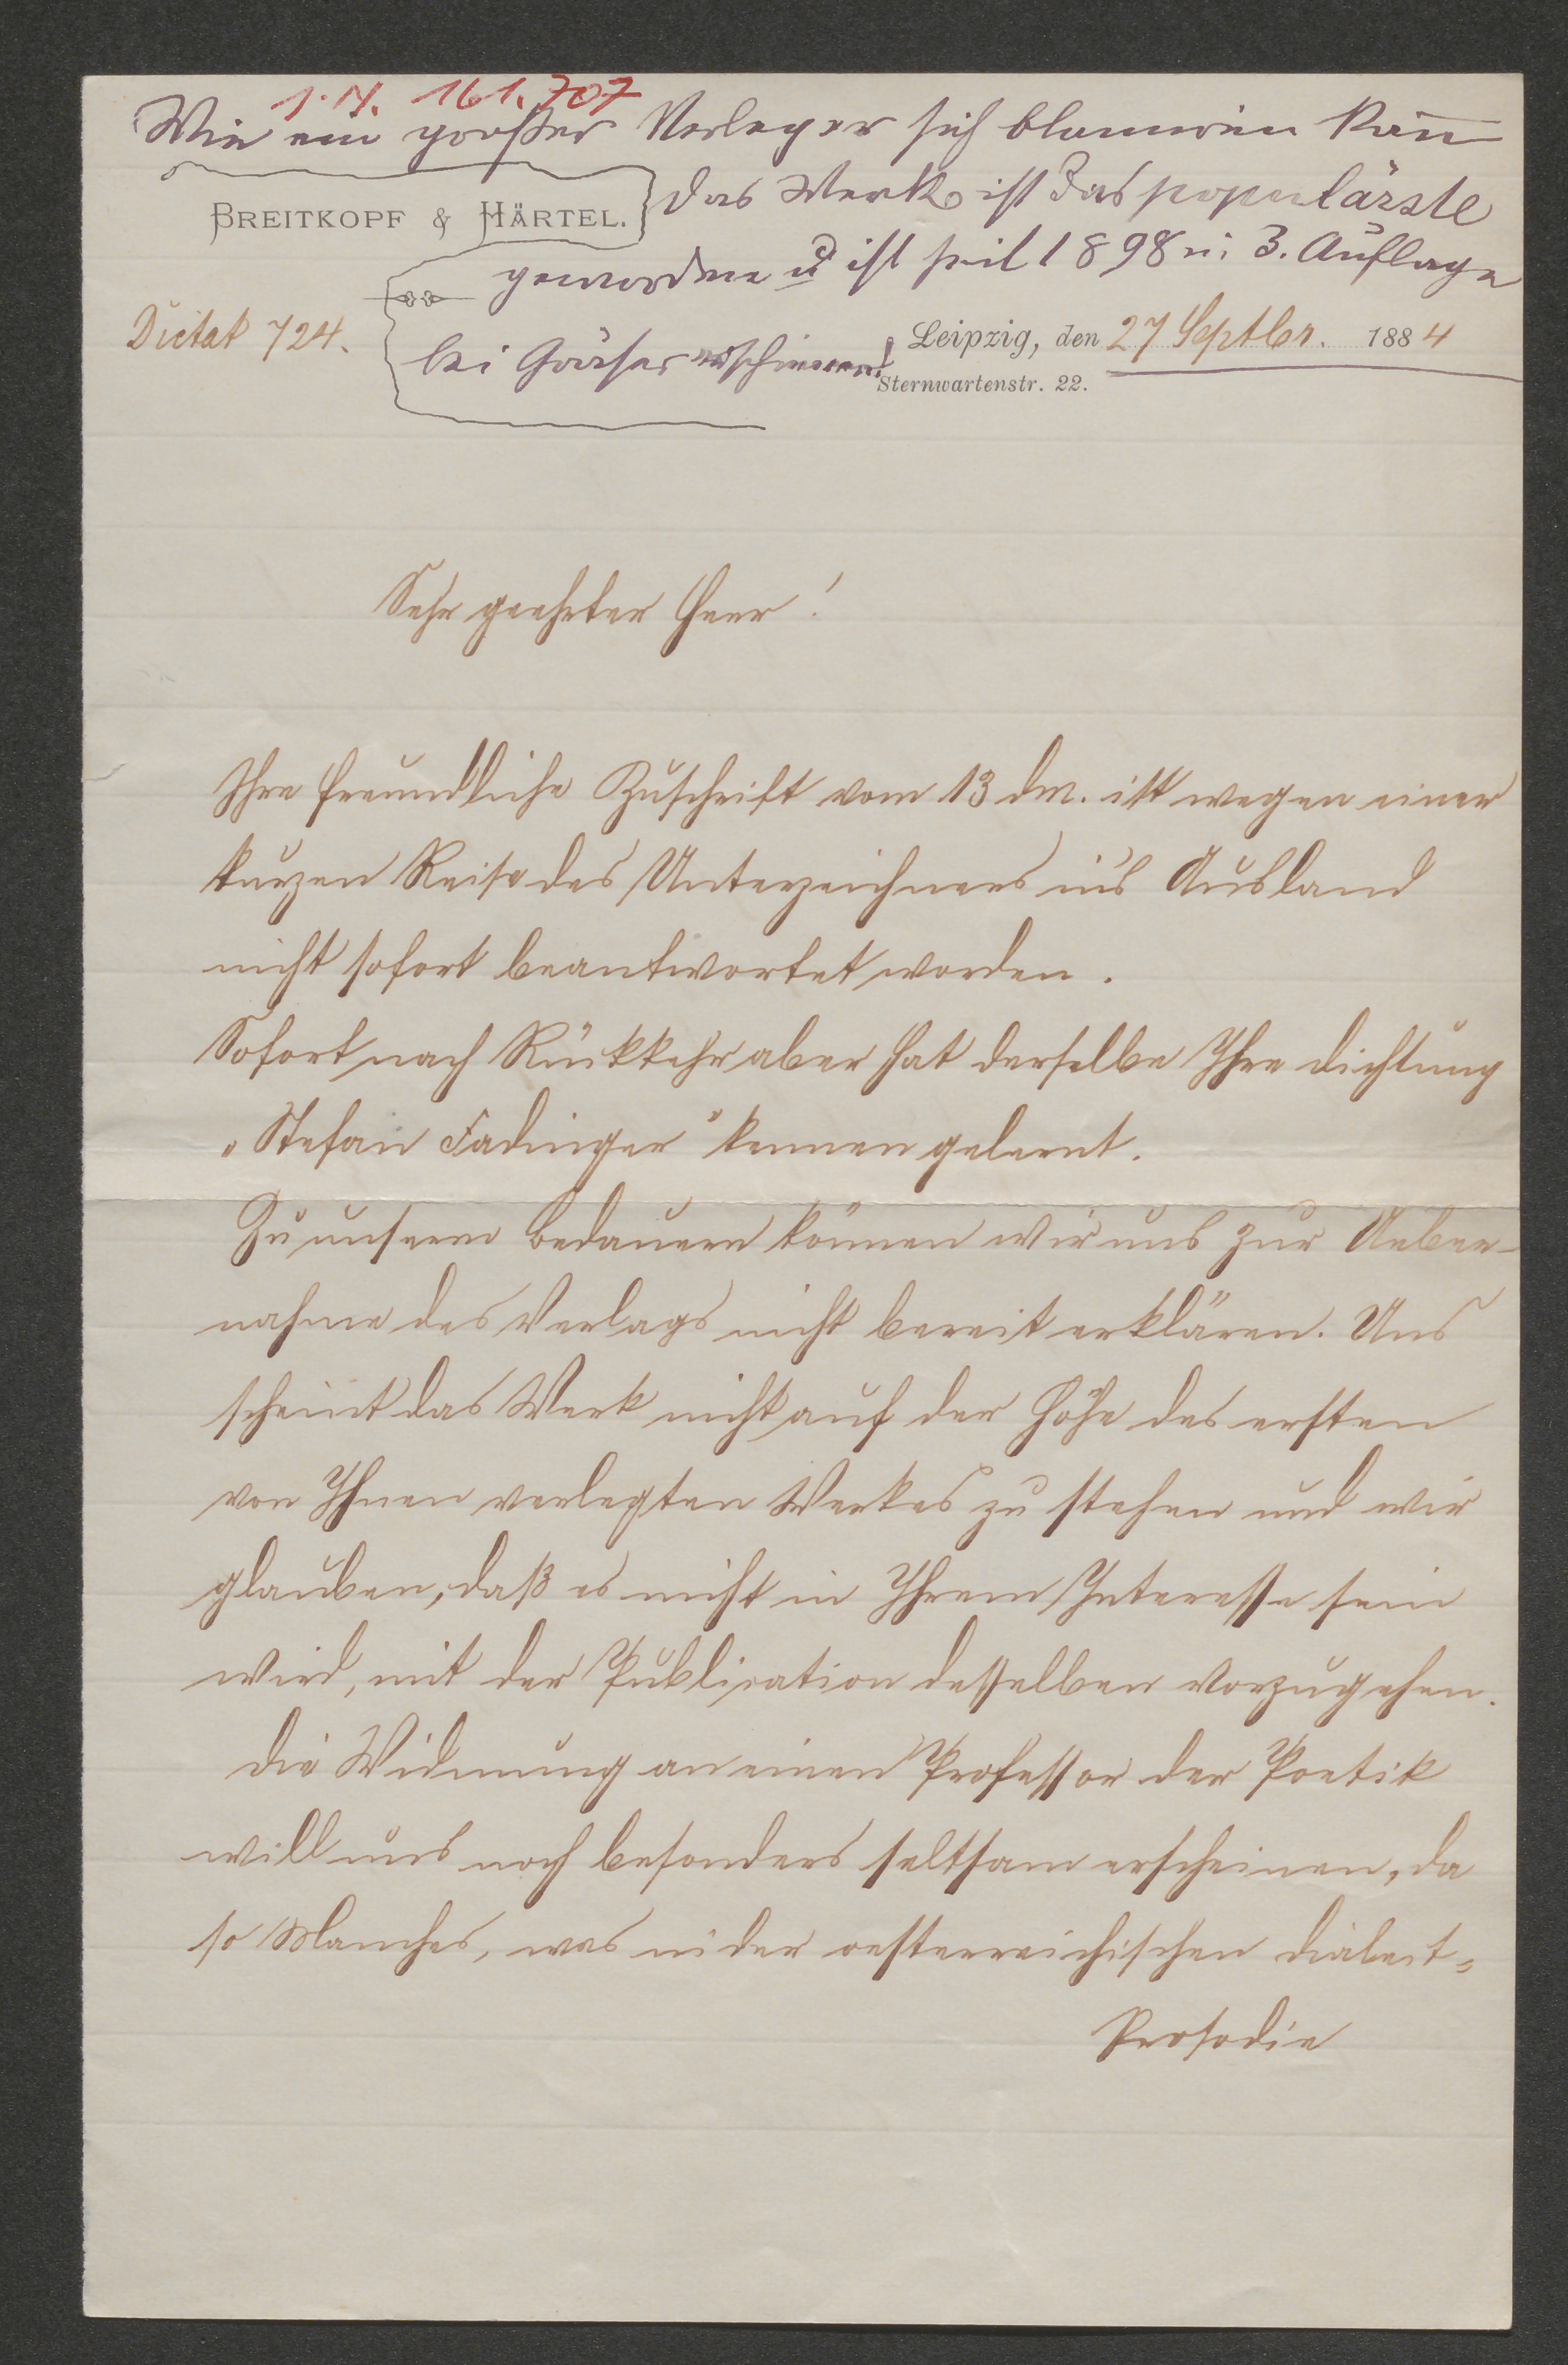 J. N. 161.707
Wie ein großer Verleger sich blamiren kann
BREITKOPF & HÄRTEL.
Das Werk ist das populärste
geworden u ist seit 1898 in 3. Auflage
bei Gräser erschienen!
Dictat 724.
Leipzig, den 27 Septbr. 1884
Sternwartenstr. 22.
Sehr geehrter Herr!
Ihre freundliche Zuschrift vom 13 dm. ist wegen einer
kurzen Reise des Unterzeichners in's Ausland
nicht sofort beantwortet worden.
Sofort nach Rückkehr aber hat derselbe Ihre Dichtung
„Stefan Fadinger" kennen gelernt.
Zu unserm Bedauern können wir uns zur Ueber-
nahme des Verlags nicht bereit erklären. Uns
scheint das Werk nicht auf der Höhe des ersten
von Ihnen verlegten Werkes zu stehen und wir
glauben, daß es nicht in Ihrem Interesse sein
wird, mit der Publication desselben vorzugehen.
Die Widmung an einen Professor der Poetik
will uns noch besonders seltsam erscheinen, da
so Manches, was in der oesterreichischen Dialect-
Prosodie